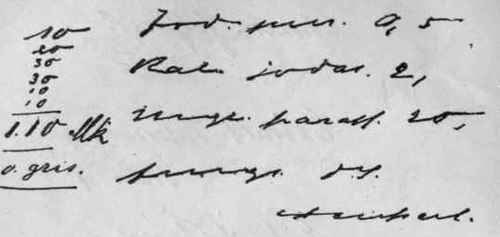 10 Jod. pur. 0,5
20
30 Kal. jodat. 2,
30
10
10 Ungt. paraff. 20,
1.10 Mk
o. gris.